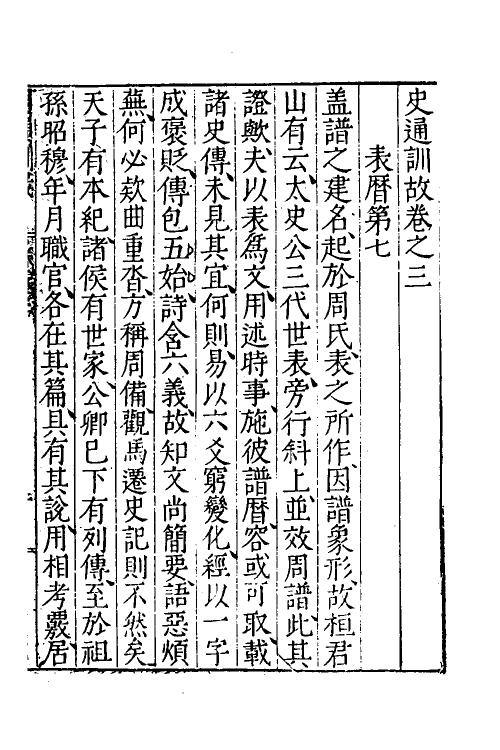 史通訓故卷之三
表曆第七
蓋譜之建名起於周氏表之所作因譜象形故桓君
山有云太史公三代世表旁行斜上並效周譜此其
證歟夫以表爲文用述時事施彼譜曆容或可取載
諸史傳未見其宜何則易以六爻窮變化經以一字
成褒貶傳包五始詩含六義故知文尚簡要語惡煩
蕪何必欵曲重沓方稱周備觀馬遷史記則不然矣
天子有本紀諸侯有世家公卿巳下有列傳至於祖
孫昭穆年月職官各在其篇具有其說用相考覈居